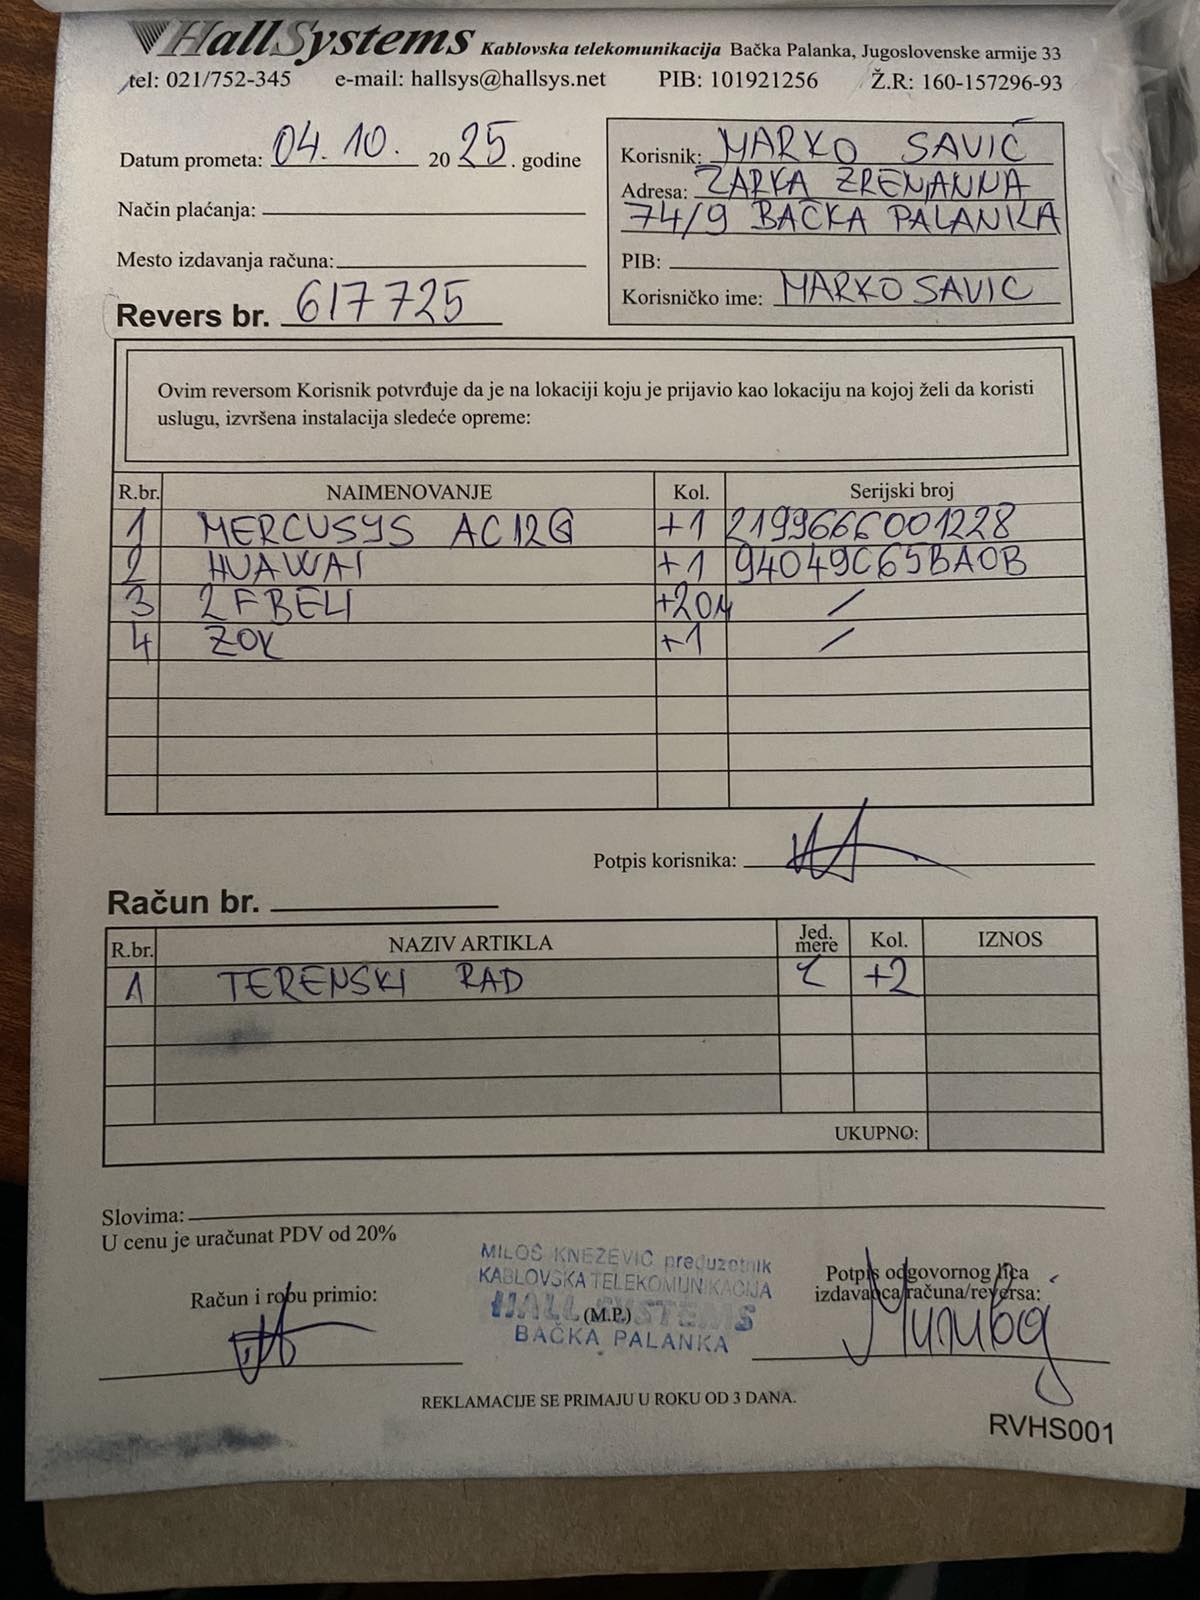 HallSystems Kablovska telekomunikacija Bačka Palanka, Jugoslovenske armije 33
tel: 021/752-345 e-mail: hallsys@hallsys.net PIB: 101921256 Ž.R: 160-157296-93
Datum prometa: 04. 10. 20 25. godine
Način plaćanja:
Mesto izdavanja računa:
Revers br. 617725
Korisnik: MARKO SAVIĆ
Adresa: ŽARKA ZRENJANINA
74/9 BAČKA PALANKA
PIB:
Korisničko ime: MARKOSAVIC
Ovim reversom Korisnik potvrđuje da je na lokaciji koju je prijavio kao lokaciju na kojoj želi da koristi
uslugu, izvršena instalacija sledeće opreme:
R.br. NAIMENOVANJE Kol. Serijski broj
1 MERCUSYS AC12G +1 2199666001228
2 HUAWAI +1 94049C65BA0B
3 2F BELI +20M /
4 ZOK +1 /
Potpis korisnika:
Račun br.
R.br. NAZIV ARTIKLA Jed. mere Kol. IZNOS
1 TERENSKI RAD +2
UKUPNO:
Slovima:
U cenu je uračunat PDV od 20%
MILOŠ KNEŽEVIĆ preduzetnik
KABLOVSKA TELEKOMUNIKACIJA
HALL SYSTEMS
BAČKA PALANKA
Račun i robu primio:
(M.P.)
Potpis odgovornog lica
izdavaoca računa/reversa:
REKLAMACIJE SE PRIMAJU U ROKU OD 3 DANA.
RVHS001